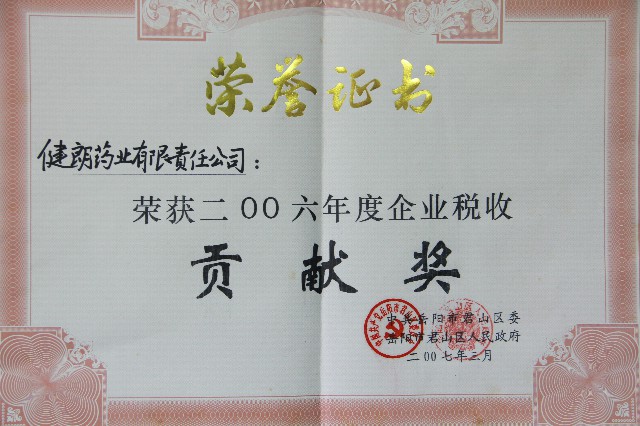 荣誉证书
健朗药业有限责任公司：
荣获二OO六年度企业税收
贡献奖
中共岳阳市君山区委
岳阳市君山区人民政府
二OO七年三月